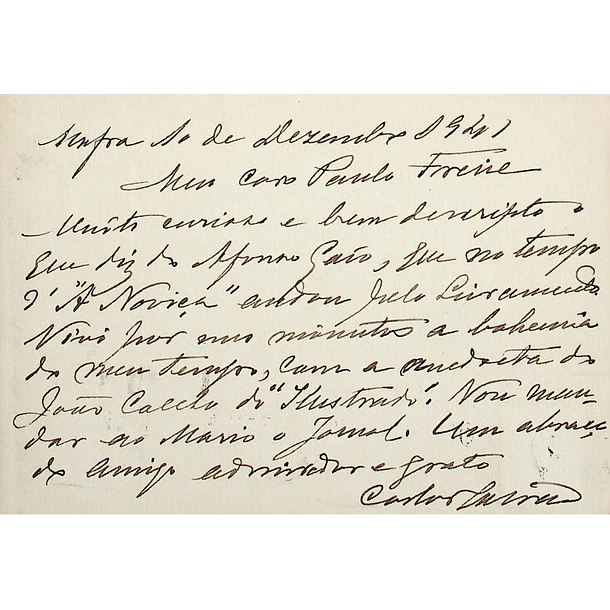 Mafra 10 de Dezembro 1941
Meu caro Paulo Freire
Muito curioso e bem descripto o
que diz do Afonso Gaio, que no tempo
d' "A Noviça" andou pelo Livramento.
Vivi por uns minutos a bohemia
do meu tempo, com a anedocta do
João Coelho do "Ilustrado". Vou man-
dar ao Mario o Jornal. Um abraço
do amigo admirador e grato
Carlos